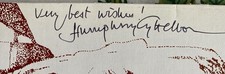 Very best wishes!
Humphrey Lyttelton